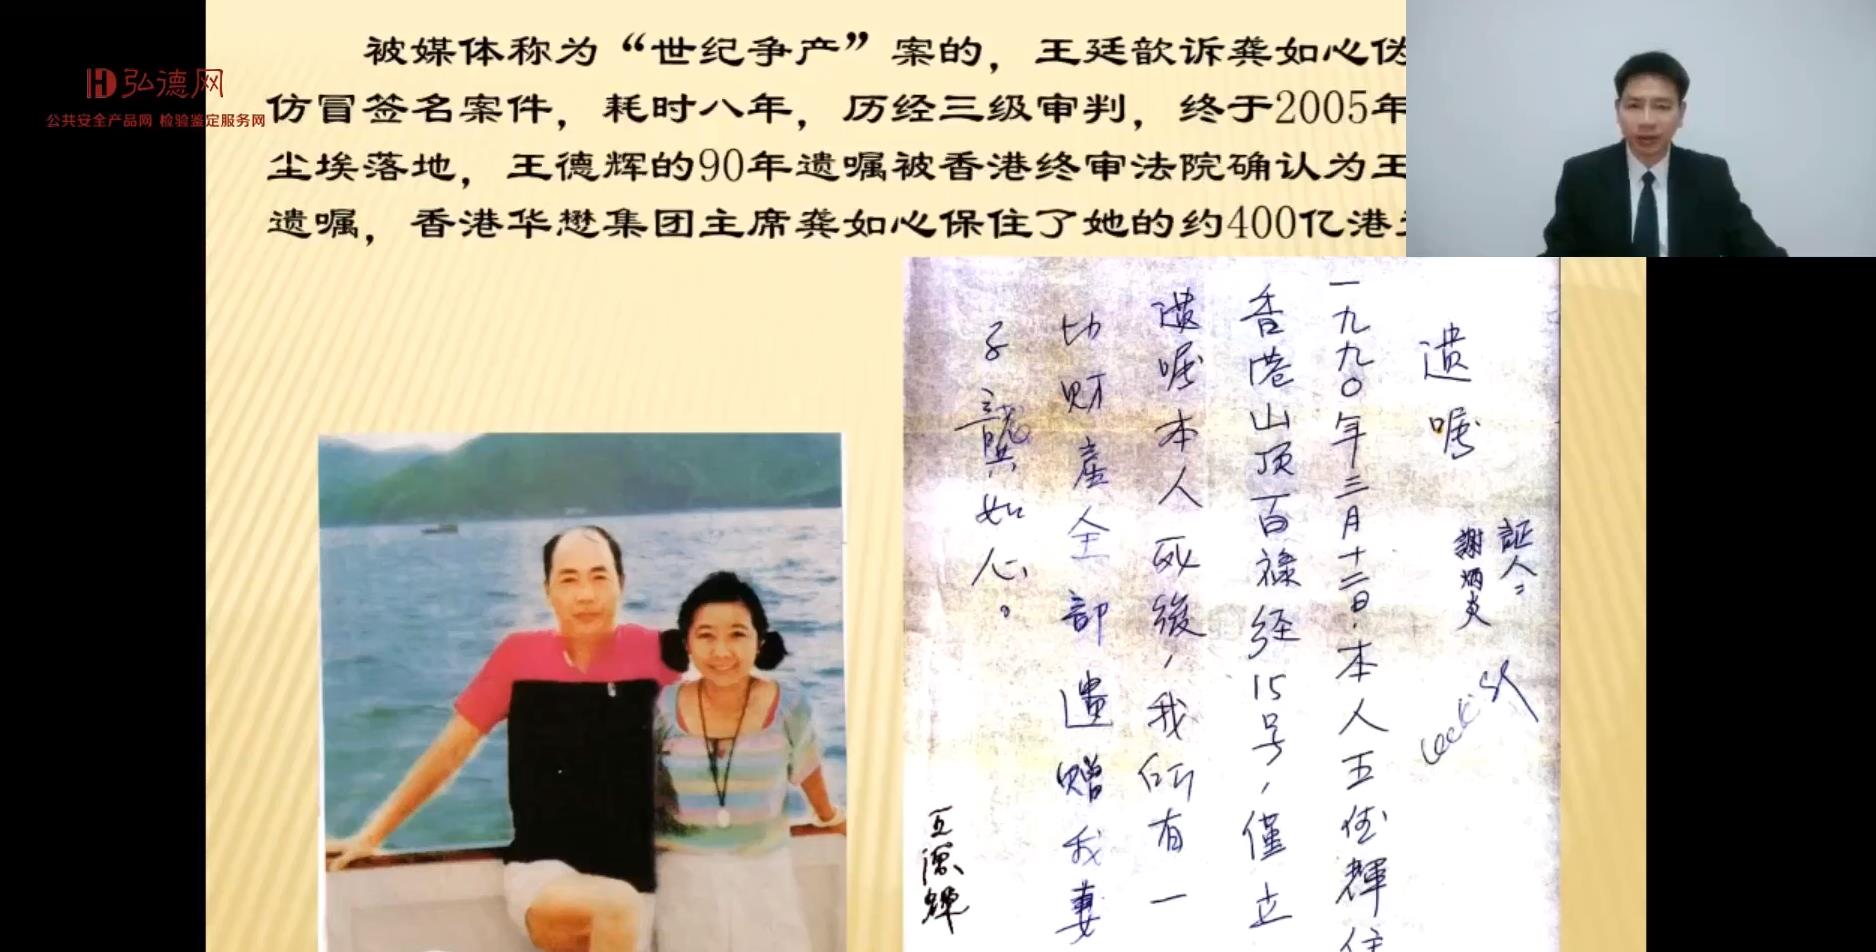 弘德网
公共安全产品网 检验鉴定服务网
被媒体称为“世纪争产”案的，王廷歆诉龚如心伪
仿冒签名案件，耗时八年，历经三级审判，终于2005年
尘埃落地，王德辉的90年遗嘱被香港终审法院确认为王
遗嘱，香港华懋集团主席龚如心保住了她的约400亿港
証人：
謝炳炎
遗嘱
一九九〇年三月十二日．本人王德輝住
香港山顶百禄径15号，僅立
遗嘱本人死後，我所有一
切财產全部遗赠我妻
子龔如心。
王德輝